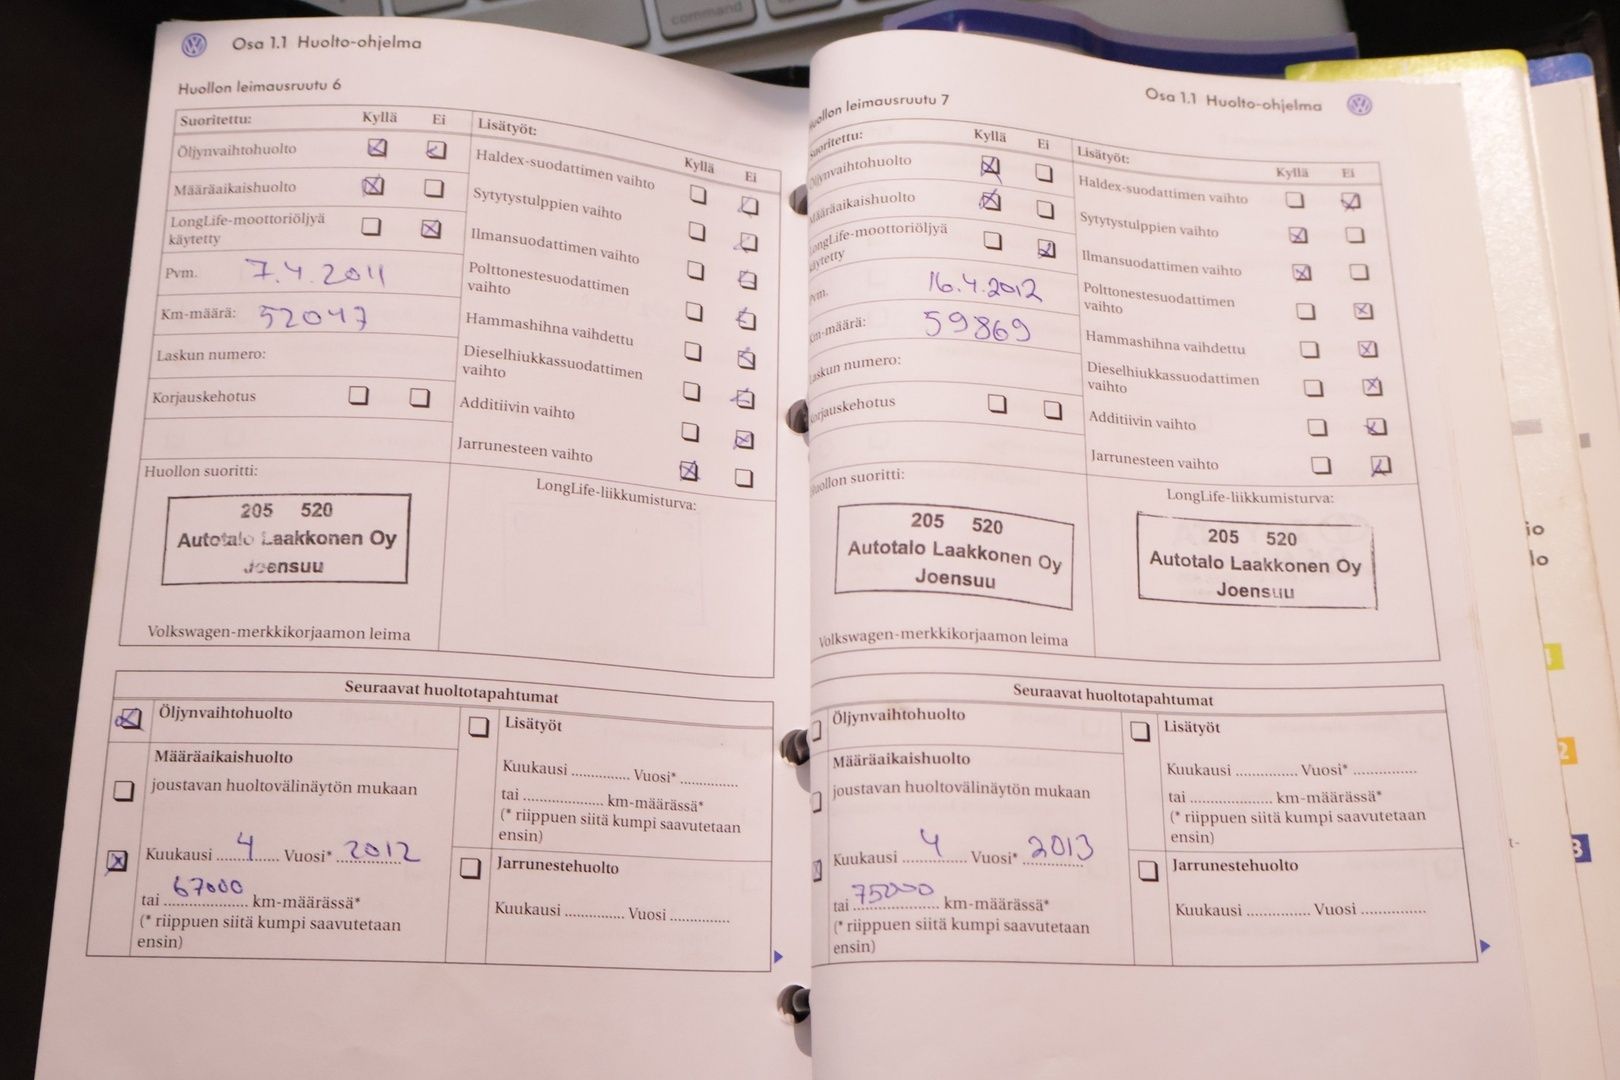 command
Osa 1.1 Huolto-ohjelma
Huollon leimausruutu 6
Suoritettu: Kyllä Ei
Öljynvaihtohuolto
Määräaikaishuolto
LongLife-moottoriöljyä
käytetty
Pvm. 7.4.2011
Km-määrä: 52047
Laskun numero:
Korjauskehotus
Huollon suoritti:
205 520
Autotalo Laakkonen Oy
Joensuu
Volkswagen-merkkikorjaamon leima
Lisätyöt:
Kyllä Ei
Haldex-suodattimen vaihto
Sytytystulppien vaihto
Ilmansuodattimen vaihto
Polttonestesuodattimen
vaihto
Hammashihna vaihdettu
Dieselhiukkassuodattimen
vaihto
Additiivin vaihto
Jarrunesteen vaihto
LongLife-liikkumisturva:
Seuraavat huoltotapahtumat
Öljynvaihtohuolto
Määräaikaishuolto
joustavan huoltovälinäytön mukaan
Kuukausi 4 Vuosi* 2012
tai 67000 km-määrässä*
(* riippuen siitä kumpi saavutetaan
ensin)
Lisätyöt
Kuukausi .............. Vuosi* ..............
tai .................... km-määrässä*
(* riippuen siitä kumpi saavutetaan
ensin)
Jarrunestehuolto
Kuukausi .............. Vuosi ..............
Osa 1.1 Huolto-ohjelma
Huollon leimausruutu 7
Suoritettu: Kyllä Ei
Öljynvaihtohuolto
Määräaikaishuolto
LongLife-moottoriöljyä
käytetty
Pvm. 16.4.2012
Km-määrä: 59869
Laskun numero:
Korjauskehotus
Huollon suoritti:
205 520
Autotalo Laakkonen Oy
Joensuu
Volkswagen-merkkikorjaamon leima
Lisätyöt:
Kyllä Ei
Haldex-suodattimen vaihto
Sytytystulppien vaihto
Ilmansuodattimen vaihto
Polttonestesuodattimen
vaihto
Hammashihna vaihdettu
Dieselhiukkassuodattimen
vaihto
Additiivin vaihto
Jarrunesteen vaihto
LongLife-liikkumisturva:
205 520
Autotalo Laakkonen Oy
Joensuu
Seuraavat huoltotapahtumat
Öljynvaihtohuolto
Määräaikaishuolto
joustavan huoltovälinäytön mukaan
Kuukausi 4 Vuosi* 2013
tai 75000 km-määrässä*
(* riippuen siitä kumpi saavutetaan
ensin)
Lisätyöt
Kuukausi .............. Vuosi* ..............
tai .................... km-määrässä*
(* riippuen siitä kumpi saavutetaan
ensin)
Jarrunestehuolto
Kuukausi .............. Vuosi ..............
2
3